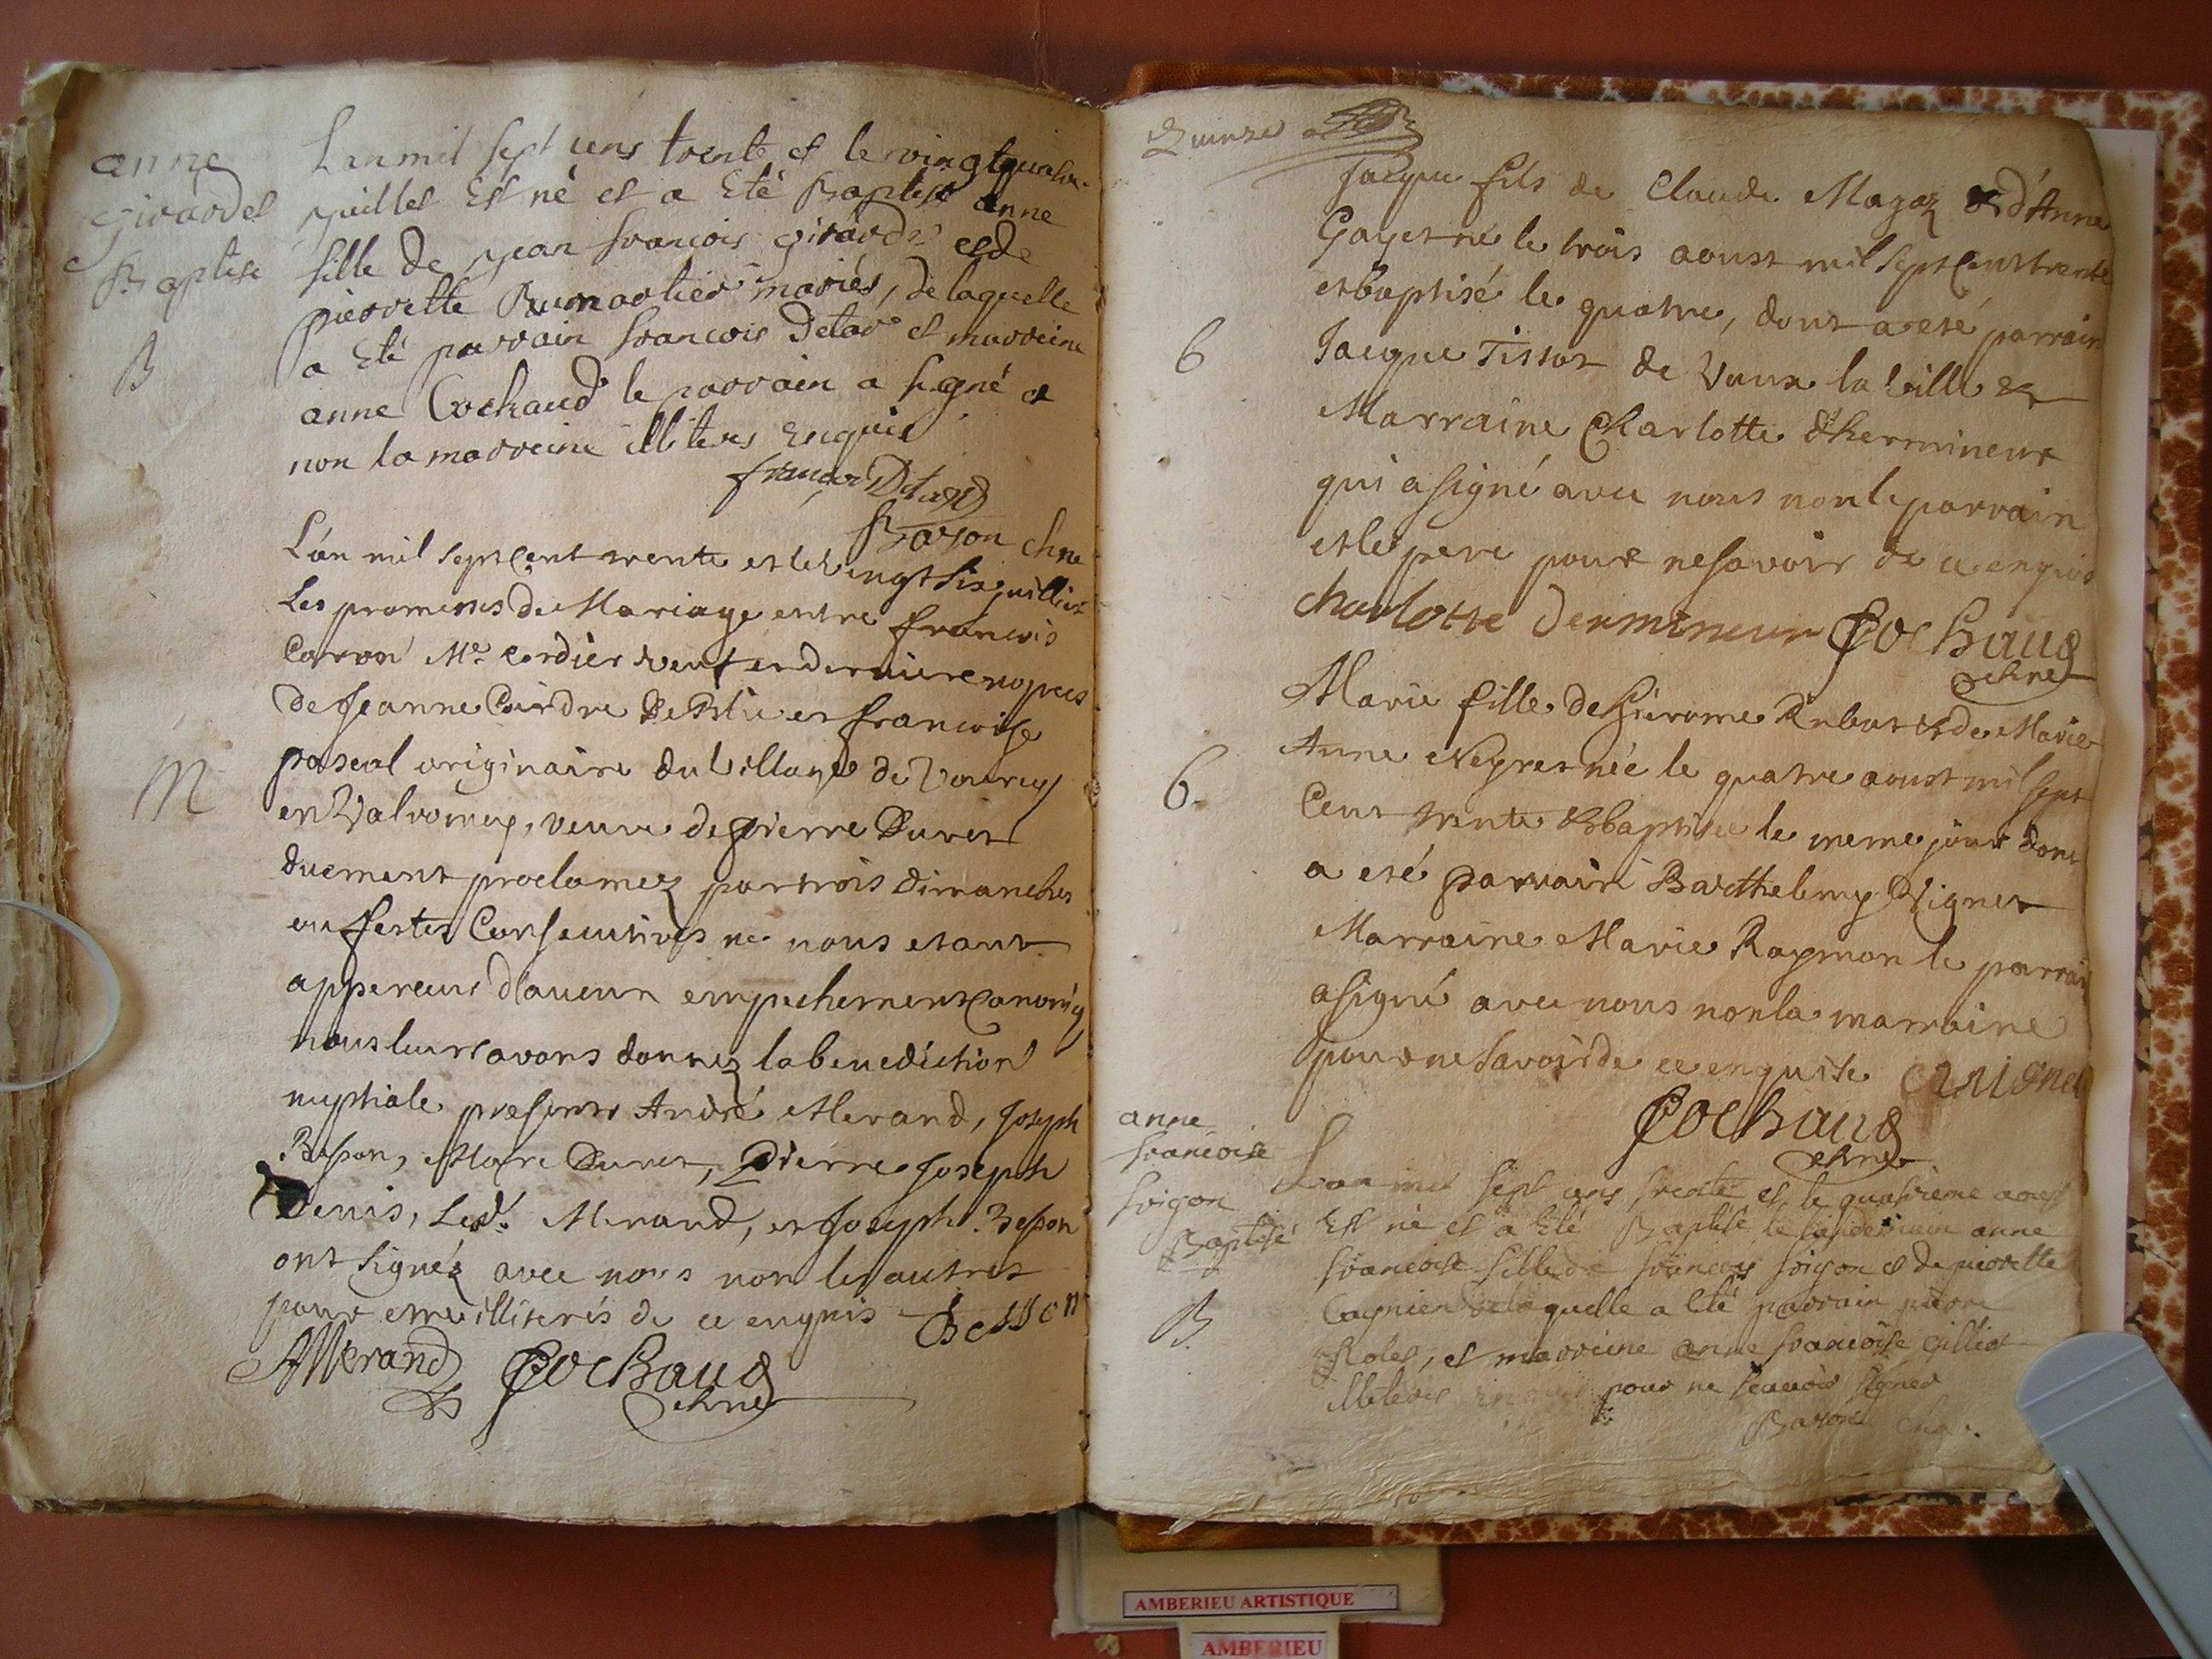 anne
Girardet
Baptise
B
L'an mil sept cens trente et le vingtquatr.
juillet Est né et a Eté Baptisé anne
fille de jean francois girardet et de
pierrette mariés, de laquelle
a Eté parrain francois Detard et marreine
anne Cochaud le parrain a signé et
non la marreine illiteres Enquis
françoi Detard
Bayon chne
M
L'an mil sept Cent trente et le vingt six juillet
Les promesses de Mariage entre francois
Caron Me Cordier veuf en derniere nopces
de Jeanne et francoise
pascal originaire du village de
en Valromey, veuve de pierre Duret
duement proclamez par trois dimanches
ou festes Consecutives ne nous etant
apperceus d'aucun empechement canoniq
nous leurs avons donnez la benediction
nuptiale presents André Merand, Joseph
Besson, Marc Duret, Pierre Joseph
Denis, Led. Merand, et Joseph Besson
ont signéz avec nous non les autres
pour etre illiterés de ce enquis Besson
AMerand Cochaud
chne
Quinze
6
Jacque fils de Claude Magaz et d'Anne
Gayet né le trois aoust mil sept Cent trente
et baptisé le quatre, dont a eté parrain
Jacque Tissot de Vaux la ville et
Marraine Charlotte d'hermineur
qui a signé avec nous non le parrain
et le pere pour ne savoir de ce enquis
charlotte dermineur Cochaud
chne
6.
Marie fille de Gierome et de Marie
Anne Negret née le quatre aoust mil sept
Cent trente et baptisee le meme jour dont
a eté parrain Barthelemy Vignet
Marraine Marie Raymon le parrain
a signé avec nous non la marraine
pour ne savoir de ce enquise
Cochaud
chne
anne
francoise
foigon
Baptisé
B.
L'an mil sept cens trente et le quatrieme aoust
Est né et a Eté Baptisé le landemain anne
francoise fille de francois foigon et de pierrette
Cagnien de laquelle a Eté parrain pierre
Rolet, et marreine anne francoise Gilliot
illiteres Enquis pour ne scavoir signer
Bayon chne
AMBERIEU ARTISTIQUE
AMBERIEU